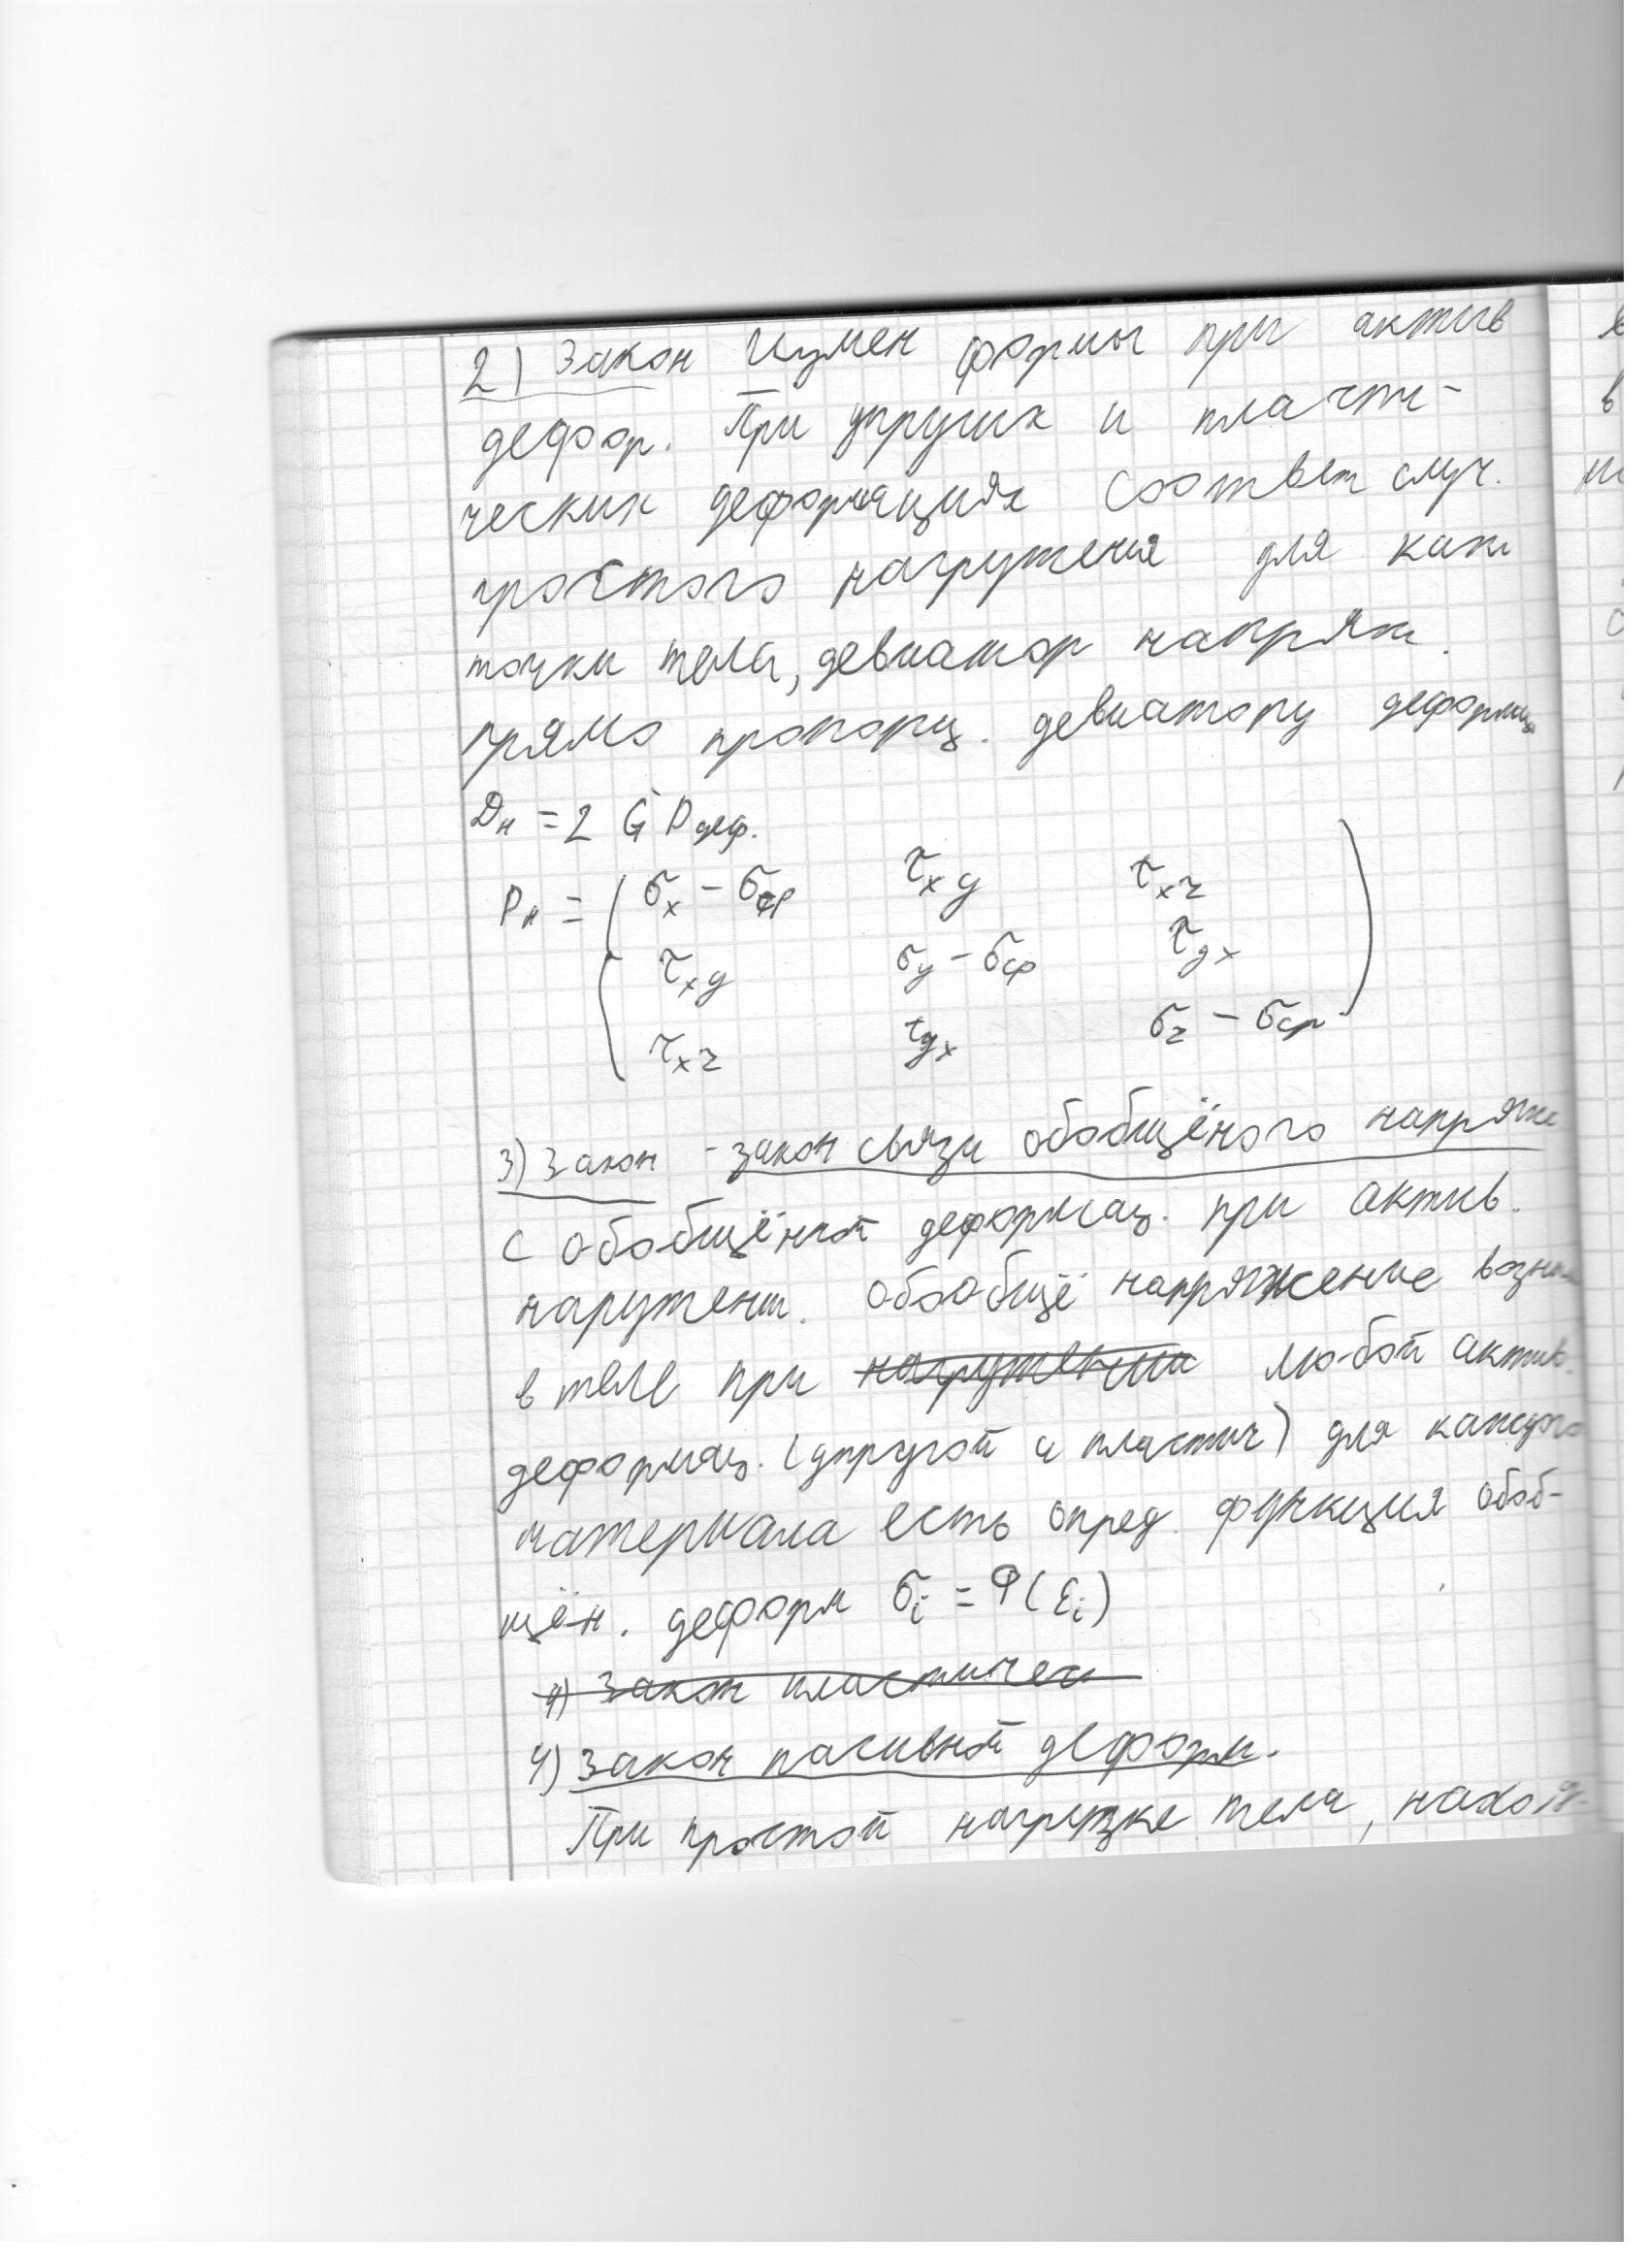 2) Закон Измен формы при актив
дефор. При упругих и пласти-
ческих деформациях соответ случ.
простого нагружения для каж
точки тела, девиатор напряж.
прямо пропорц. девиатору деформац
Dн = 2 G Dдеф.
Dн = ( σx - σср τxy τxz
τxy σy - σср τyx
τxz τyx σz - σср )
3) Закон - закон связи обобщёного напряже
с обобщёной деформац. при актив.
нагружени. Обобщё напряжение возник
в теле при нагружении любой актив.
деформац. (упругой и пластич) для каждого
материала есть опред. функция обоб-
щён. деформ σi = Φ(εi)
4) Закон пластичес
4) Закон пасивной деформ.
При простой нагрузке тела, находя-